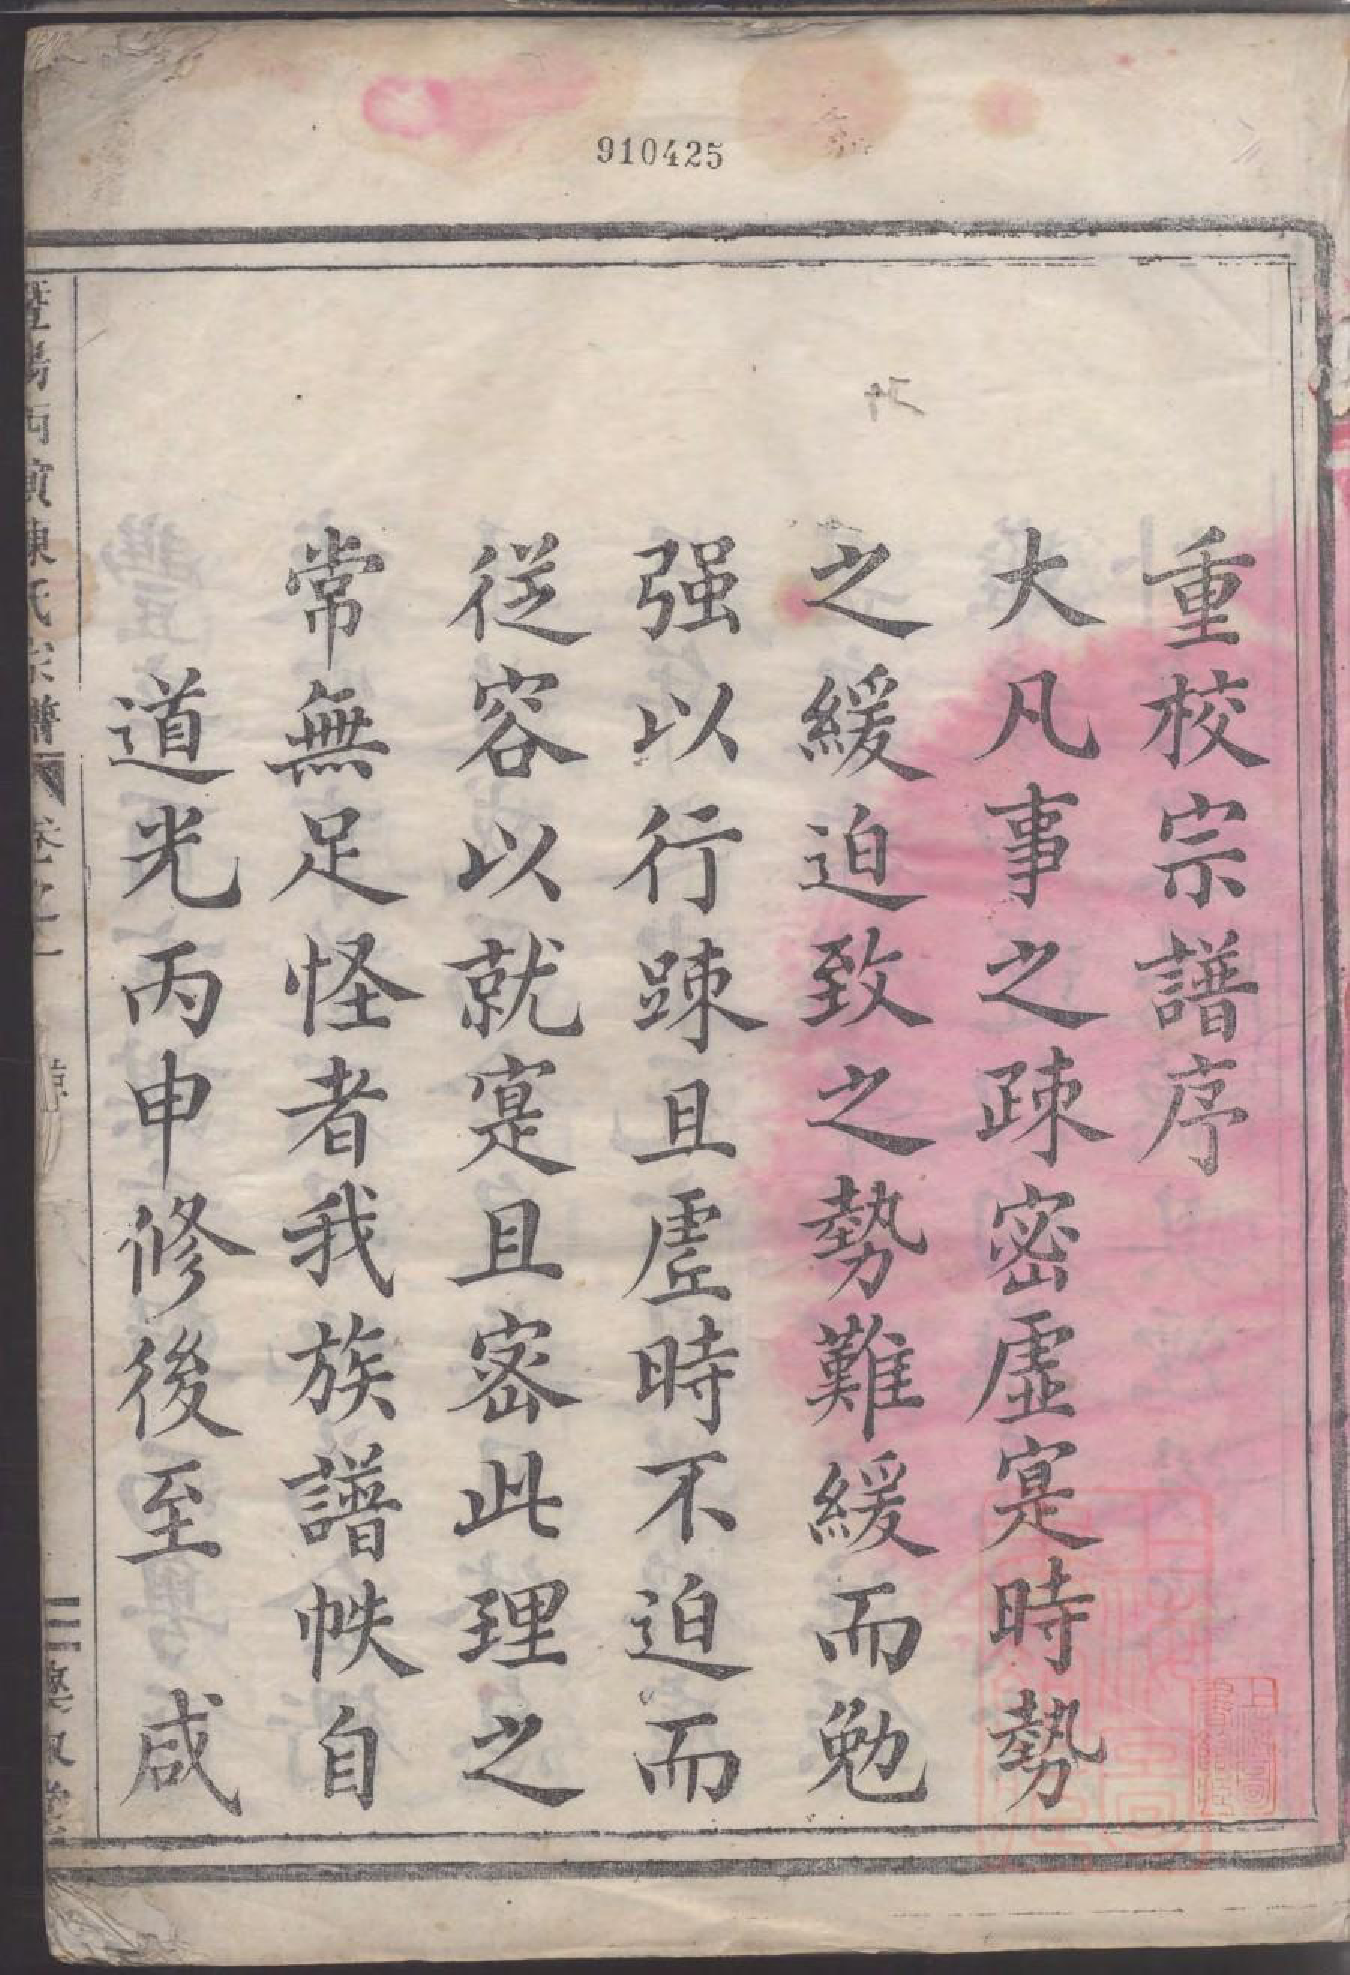 910425
重校宗譜序
大凡事之疎密虛寔時勢
之緩迫致之勢難緩而勉
强以行踈且虗時不迫而
從容以就寔且密此理之
常無足怪者我族譜帙自
道光丙申修後至咸
暨陽西濱陳氏宗譜 卷之一